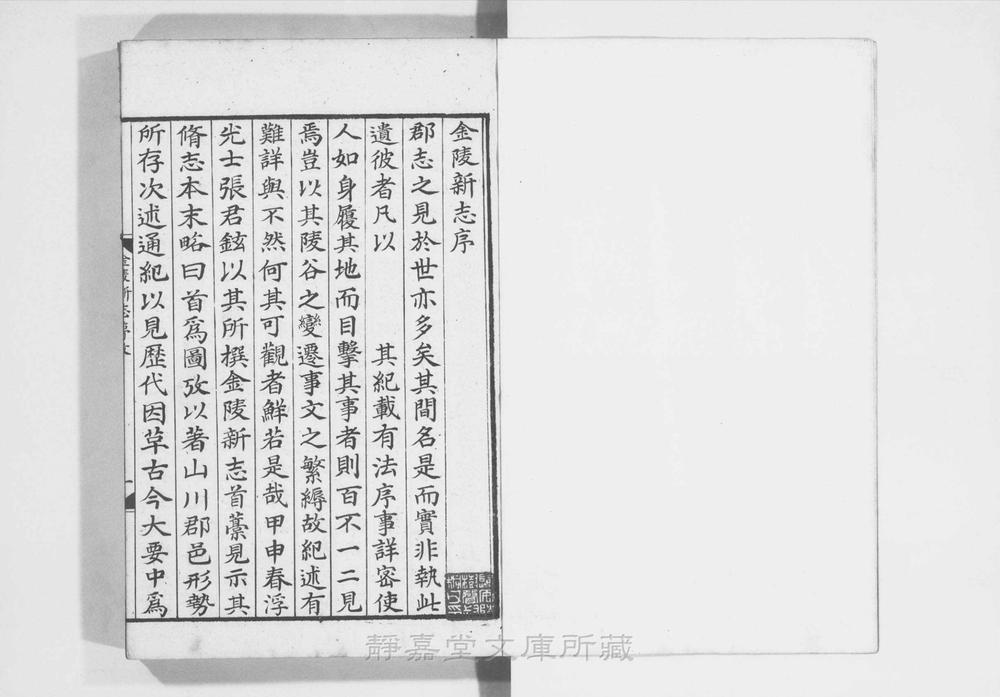 金陵新志序
郡志之見於世亦多矣其間名是而實非執此
遺彼者凡以　　　其紀載有法序事詳密使
人如身履其地而目擊其事者則百不一二見
焉豈以其陵谷之變遷事文之繁縟故紀述有
難詳與不然何其可觀者鮮若是哉甲申春浮
光士張君鉉以其所撰金陵新志首藁見示其
脩志本末略曰首爲圖攷以著山川郡邑形勢
所存次述通紀以見歷代因革古今大要中爲
金陵新志序
靜嘉堂文庫所藏